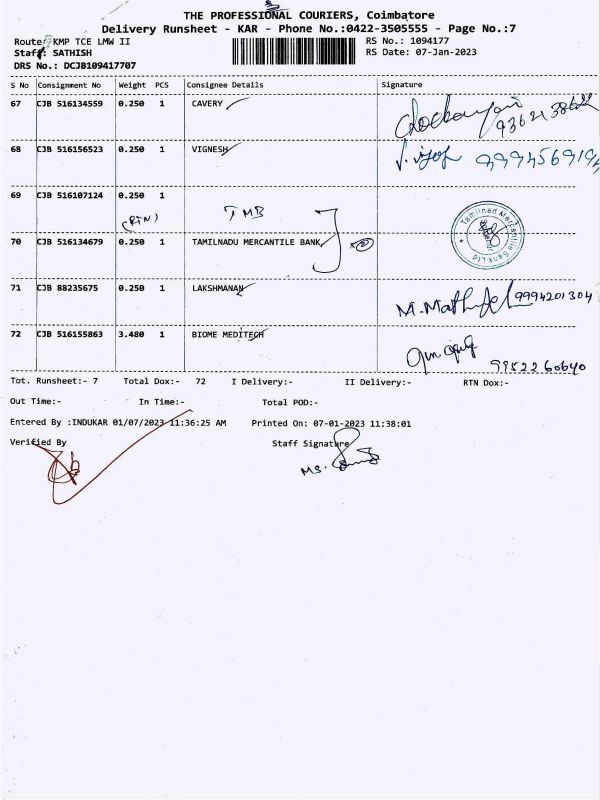 THE PROFESSIONAL COURIERS, Coimbatore
Delivery Runsheet - KAR - Phone No.:0422-3505555 - Page No.:7
Route: KMP TCE LMW II RS No.: 1094177
Staff: SATHISH RS Date: 07-Jan-2023
DRS No.: DCJB109417707
S No Consignment No Weight PCS Consignee Details Signature
67 CJB 516134559 0.250 1 CAVERY
68 CJB 516156523 0.250 1 VIGNESH
69 CJB 516107124 0.250 1
(RTN) TMB
Tamilnad Mercantile Bank Ltd
70 CJB 516134679 0.250 1 TAMILNADU MERCANTILE BANK
71 CJB 88235675 0.250 1 LAKSHMANAN 9994201304
72 CJB 516155863 3.480 1 BIOME MEDITECH
9952260640
Tot. Runsheet:- 7 Total Dox:- 72 I Delivery:- II Delivery:- RTN Dox:-
Out Time:- In Time:- Total POD:-
Entered By :INDUKAR 01/07/2023 11:36:25 AM Printed On: 07-01-2023 11:38:01
Verified By Staff Signature